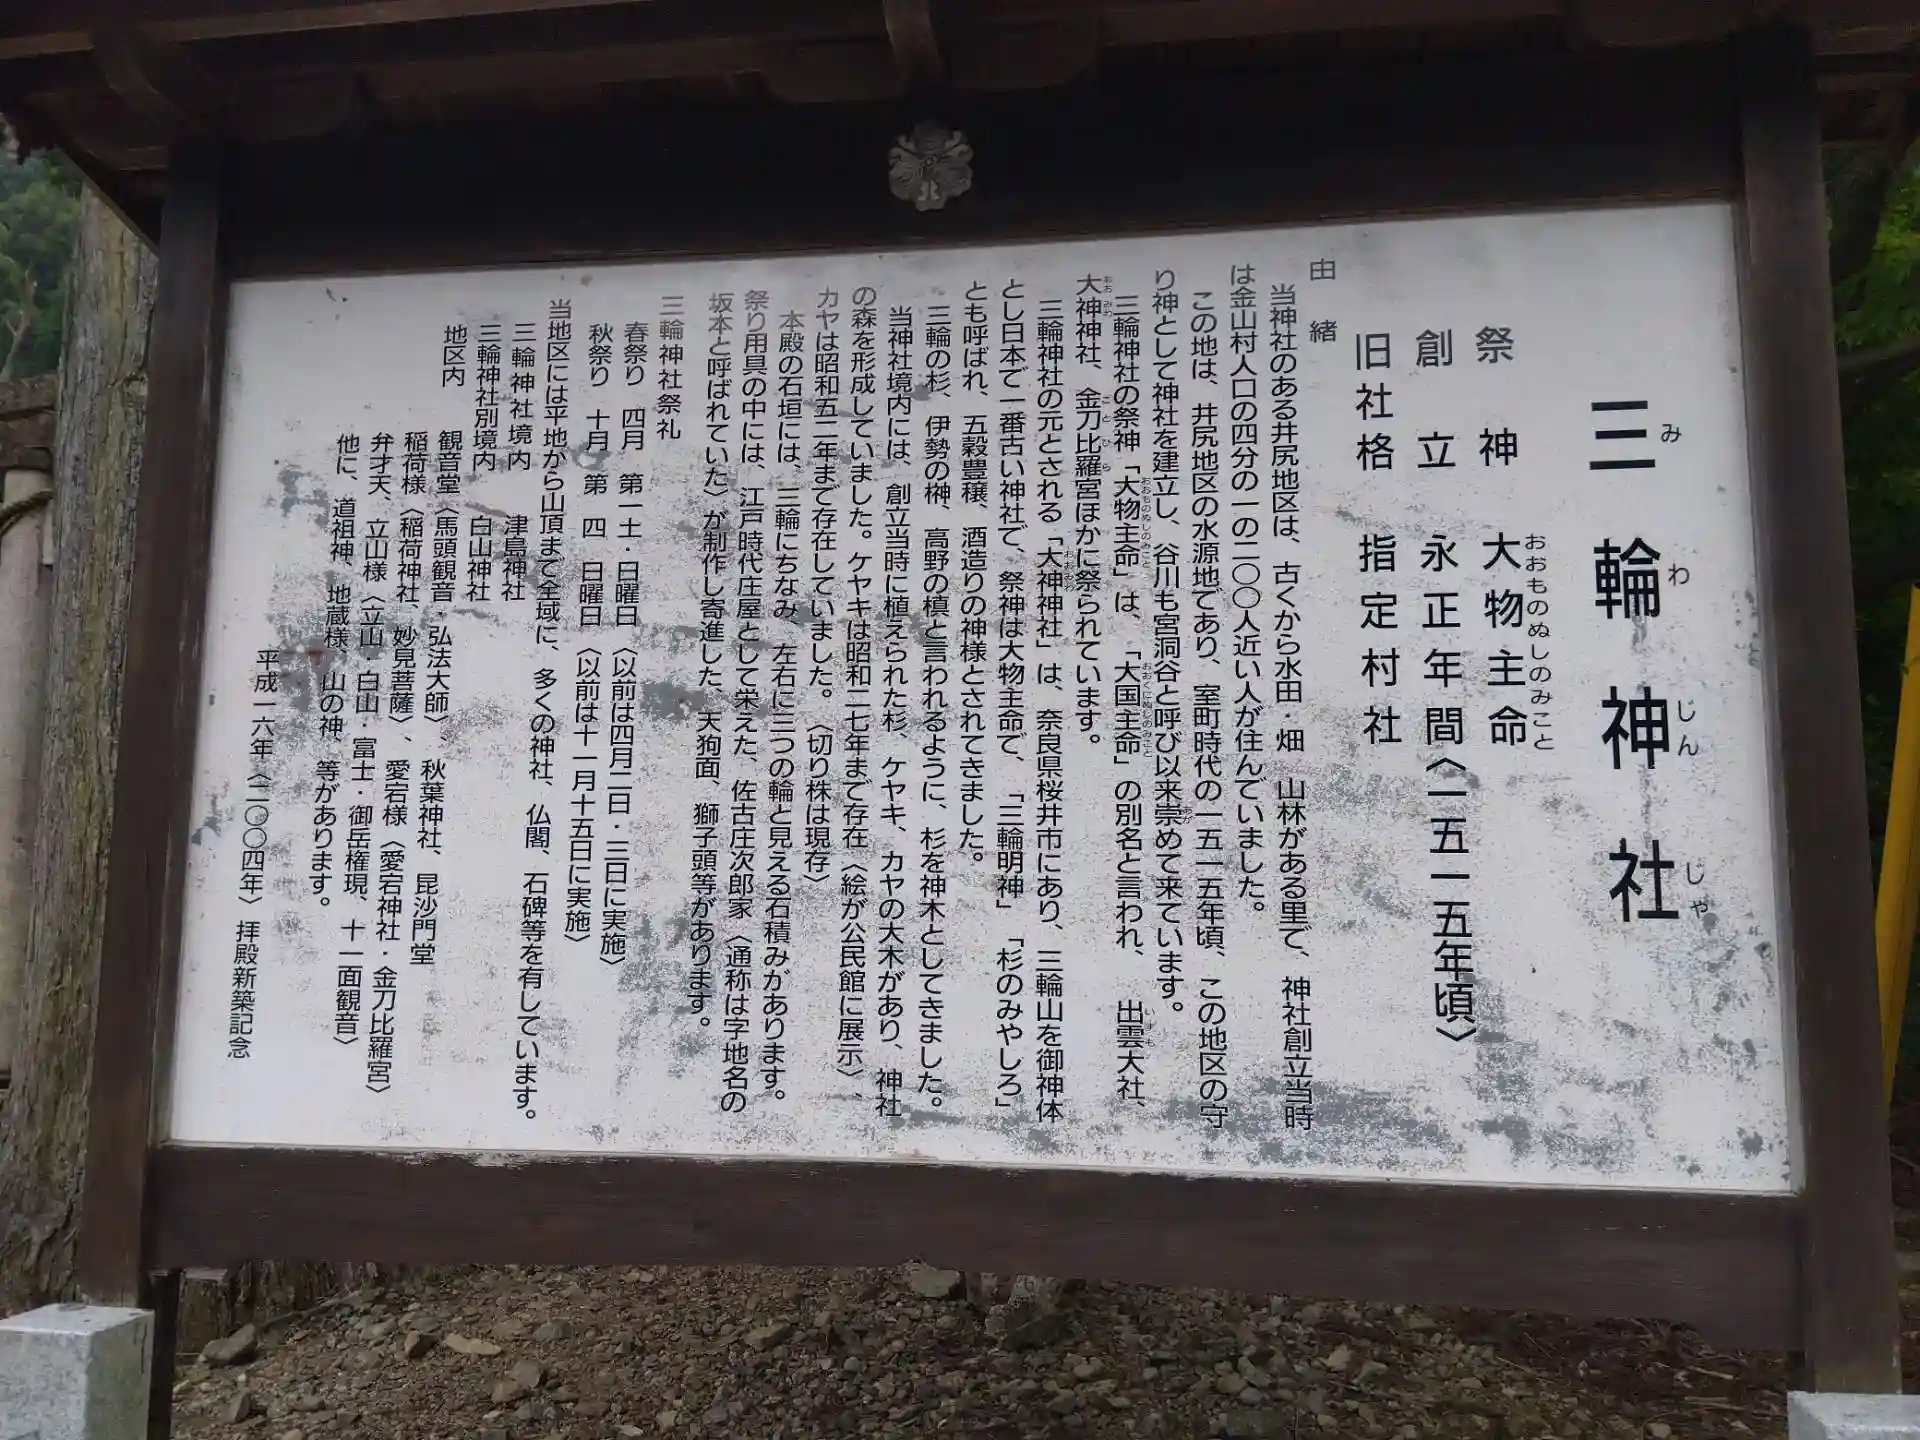 三輪神社
みわじんじゃ
祭神 大物主命
おおものぬしのみこと
創立 永正年間〈一五一五年頃〉
旧社格 指定村社
由緒
当神社のある井尻地区は、古くから水田・畑 山林がある里で、神社創立当時
は金山村人口の四分の一の二〇〇人近い人が住んでいました。
この地は、井尻地区の水源地であり、室町時代の一五一五年頃、この地区の守
り神として神社を建立し、谷川も宮洞谷と呼び以来崇めて来ています。
三輪神社の祭神「大物主命」は、「大国主命」の別名と言われ、出雲大社、
大神神社、金刀比羅宮ほかに祭られています。
三輪神社の元とされる「大神神社」は、奈良県桜井市にあり、三輪山を御神体
とし日本で一番古い神社で、祭神は大物主命で、「三輪明神」「杉のみやしろ」
とも呼ばれ、五穀豊穣、酒造りの神様とされてきました。
三輪の杉、伊勢の榊、高野の槙と言われるように、杉を神木としてきました。
当神社境内には、創立当時に植えられた杉、ケヤキ、カヤの大木があり、神社
の森を形成していました。ケヤキは昭和二七年まで存在〈絵が公民館に展示〉、
カヤは昭和五二年まで存在していました。〈切り株は現存〉
本殿の石垣には、三輪にちなみ、左右に三つの輪と見える石積みがあります。
祭り用具の中には、江戸時代庄屋として栄えた、佐古庄次郎家〈通称は字地名の
坂本と呼ばれていた〉が制作し寄進した、天狗面、獅子頭等があります。
三輪神社祭礼
春祭り 四月 第一土・日曜日〈以前は四月二日・三日に実施〉
秋祭り 十月 第四 日曜日〈以前は十一月十五日に実施〉
当地区には平地から山頂まで全域に、多くの神社、仏閣、石碑等を有しています。
三輪神社境内 津島神社
三輪神社別境内 白山神社
地区内 観音堂〈馬頭観音・弘法大師〉、秋葉神社、昆沙門堂
稲荷様〈稲荷神社、妙見菩薩〉、愛宕様〈愛宕神社・金刀比羅宮〉
弁才天、立山様〈立山・白山・富士・御岳権現、十一面観音〉
他に、道祖神、地蔵様、山の神、等があります。
平成一六年〈二〇〇四年〉拝殿新築記念